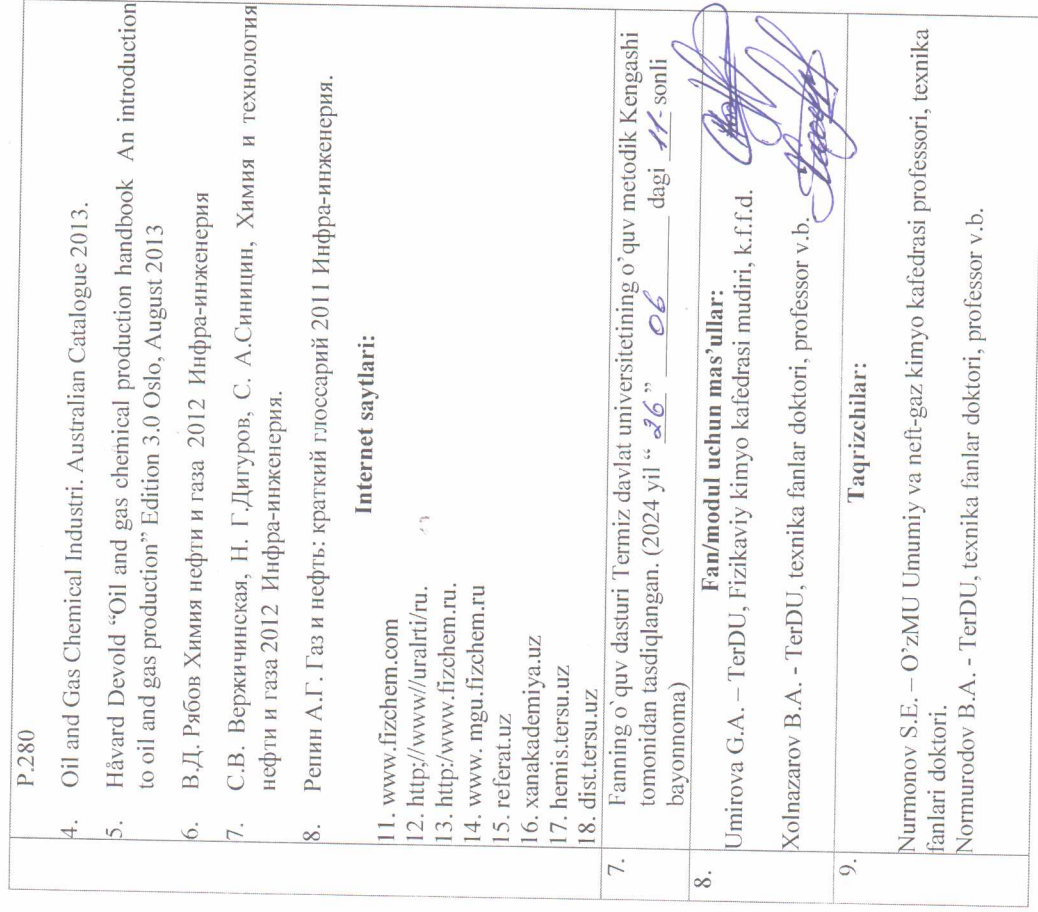 P.280
4. Oil and Gas Chemical Industri. Australian Catalogue 2013.
5. Håvard Devold “Oil and gas chemical production handbook An introduction
to oil and gas production” Edition 3.0 Oslo, August 2013
6. В.Д. Рябов Химия нефти и газа 2012 Инфра-инженерия
7. С.В. Вержичинская, Н. Г.Дигуров, С. А.Синицин, Химия и технология
нефти и газа 2012 Инфра-инженерия.
8. Репин А.Г. Газ и нефть: краткий глоссарий 2011 Инфра-инженерия.
Internet saytlari:
11. www.fizchem.com
12. http;/www//uralrti/ru.
13. http:/www.fizchem.ru.
14. www. mgu.fizchem.ru
15. referat.uz
16. xanakademiya.uz
17. hemis.tersu.uz
18. dist.tersu.uz
7. Fanning o`quv dasturi Termiz davlat universitetining o’quv metodik Kengashi
tomonidan tasdiqlangan. (2024 yil “ 26 ” 06 dagi 11- sonli
bayonnoma)
8. Fan/modul uchun mas’ullar:
Umirova G.A. – TerDU, Fizikaviy kimyo kafedrasi mudiri, k.f.f.d.
Xolnazarov B.A. - TerDU, texnika fanlar doktori, professor v.b.
9. Taqrizchilar:
Nurmonov S.E. – O’zMU Umumiy va neft-gaz kimyo kafedrasi professori, texnika
fanlari doktori.
Normurodov B.A. - TerDU, texnika fanlar doktori, professor v.b.